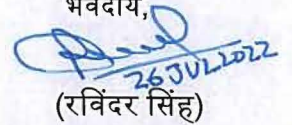 भवदीय,
26 JUL 2022
(रविंदर सिंह)